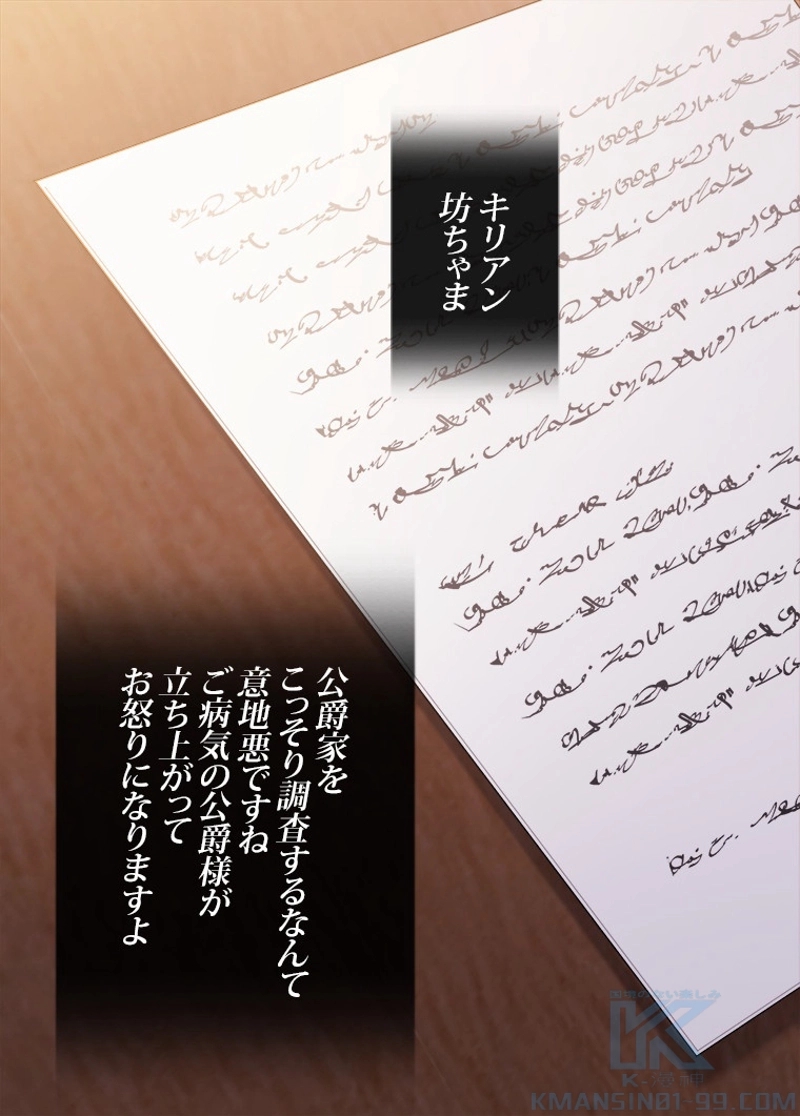 キリアン
坊ちゃま
公爵家を
こっそり調査するなんて
意地悪ですね
ご病気の公爵様が
立ち上がって
お怒りになりますよ
KMANSIN01-99.COM